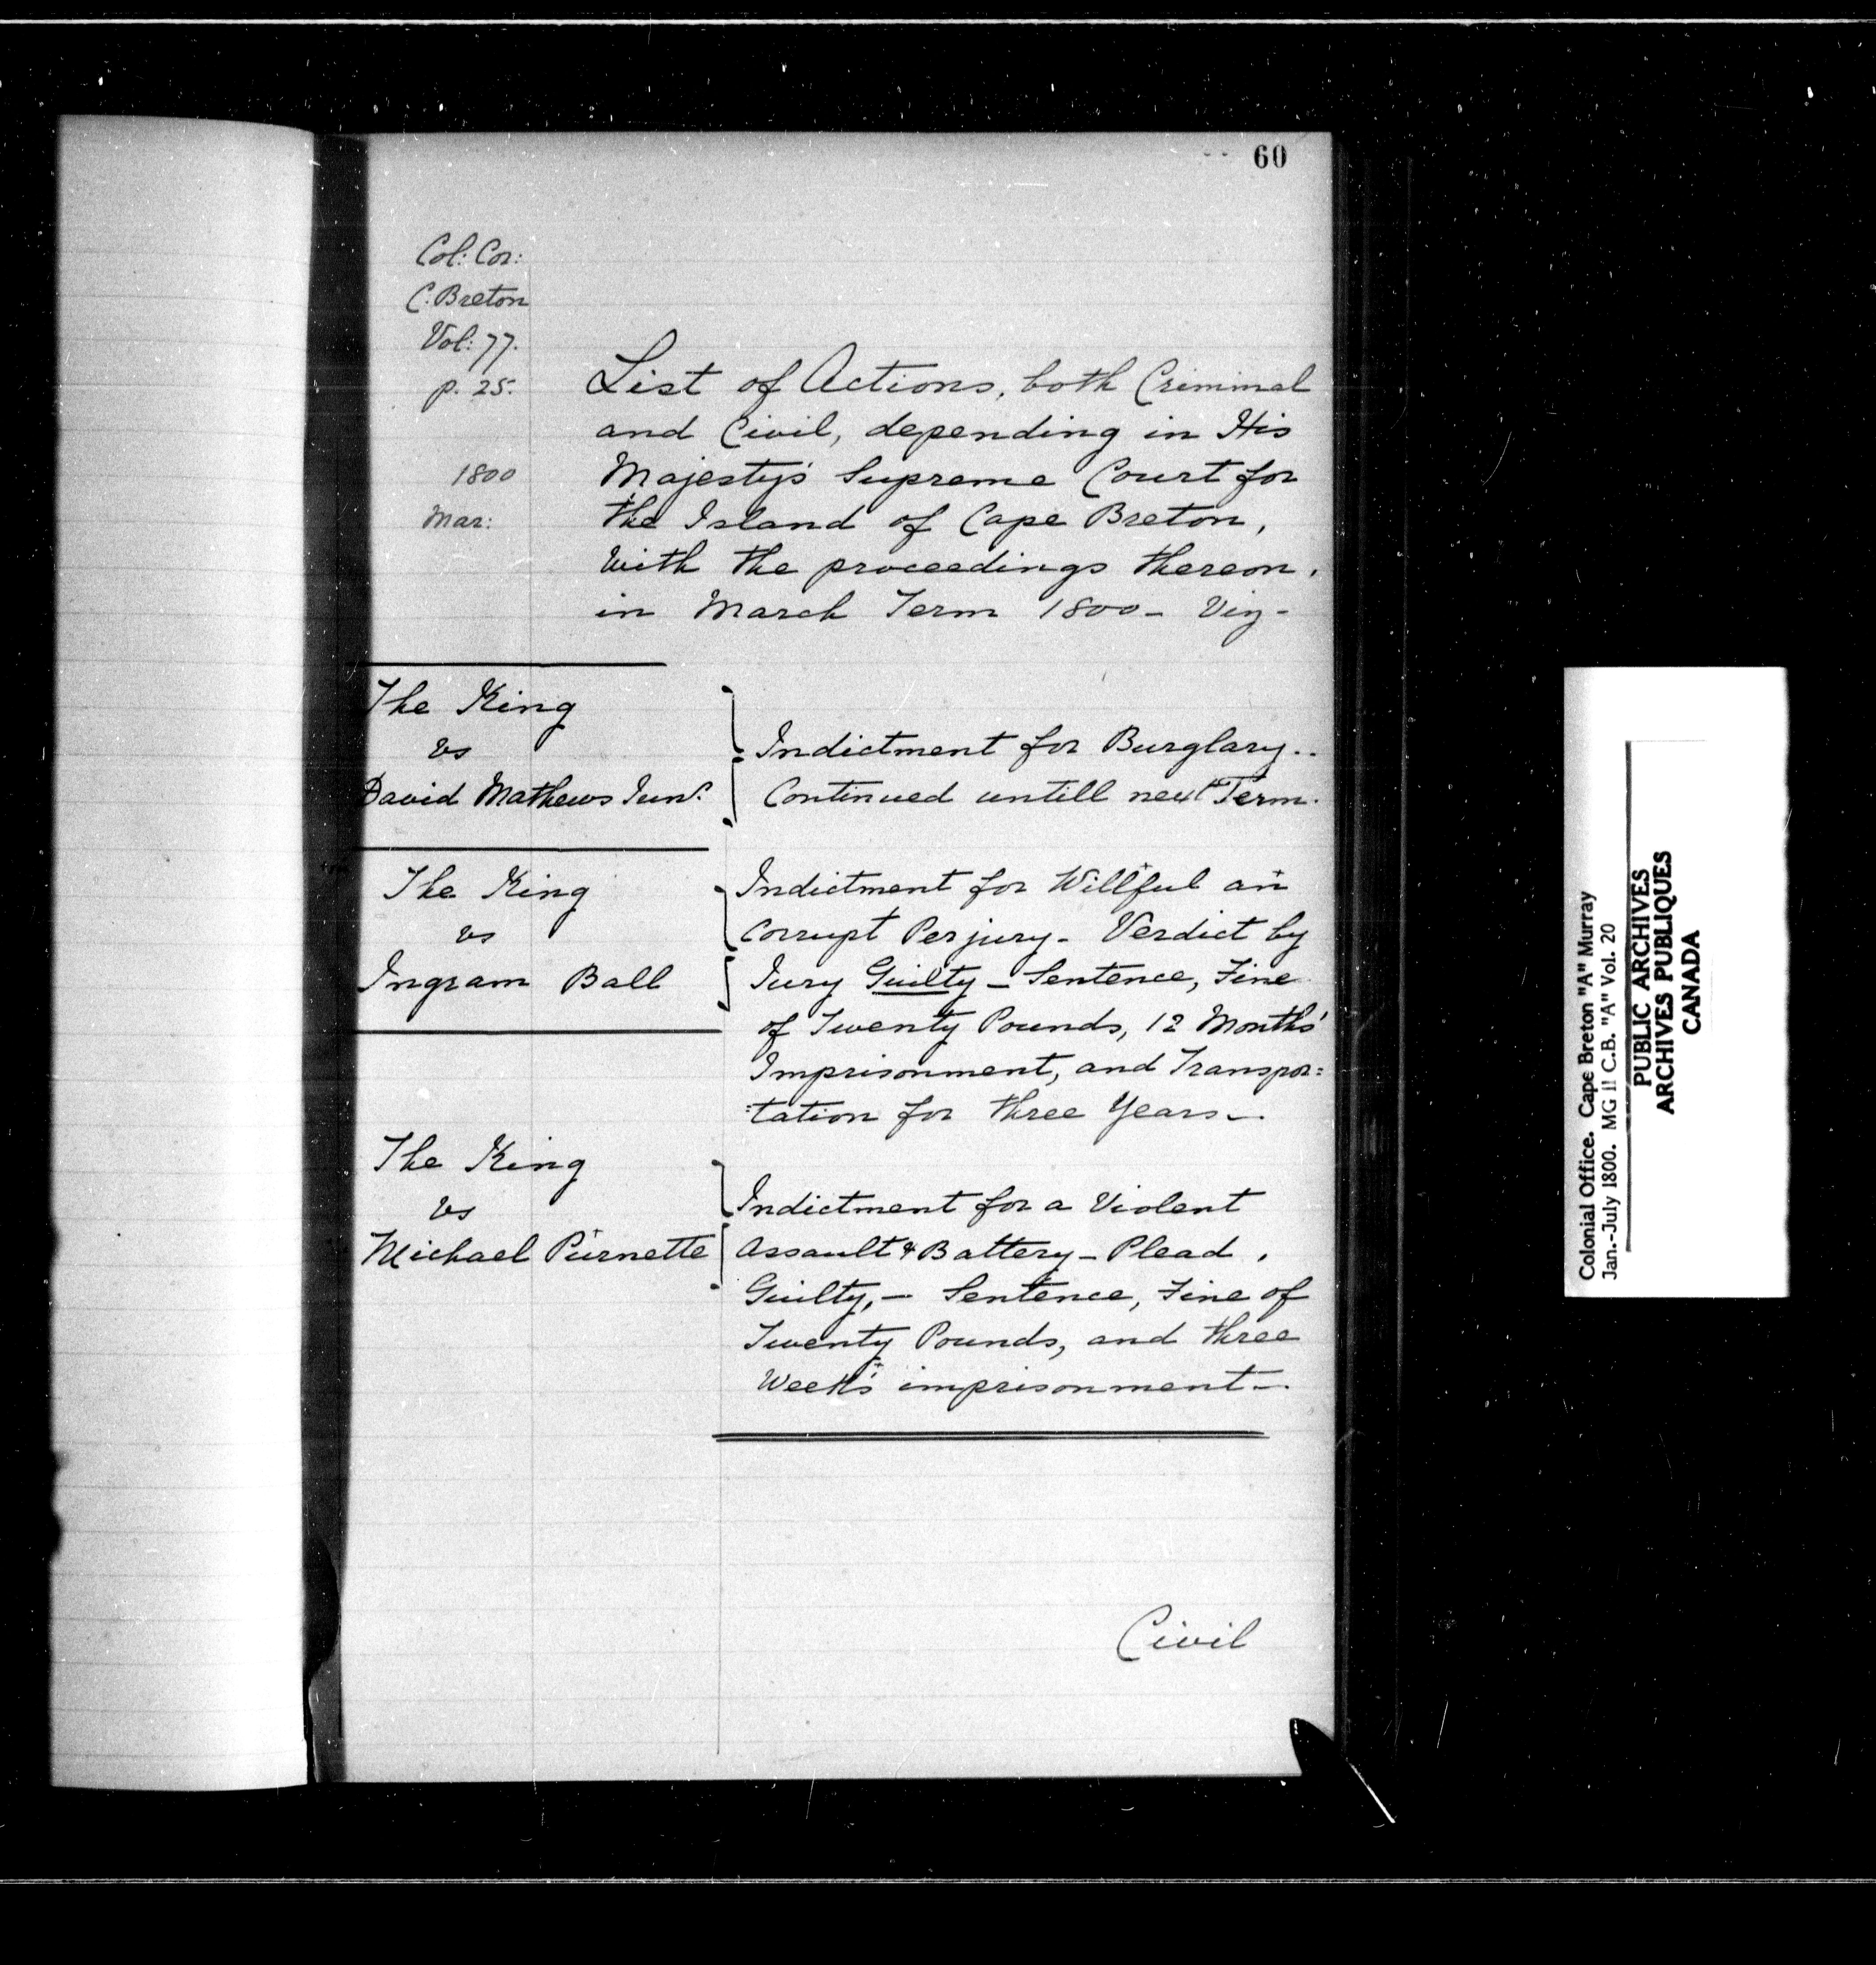 60
Col: Cor:
C. Breton
Vol: 77.
p. 25.
1800
Mar:
List of Actions, both Criminal
and Civil, depending in His
Majesty's Supreme Court for
the Island of Cape Breton,
with the proceedings thereon,
in March Term 1800 - Viz -
The King
vs
David Mathews Junr.
Indictment for Burglary..
Continued untill next Term.
The King
vs
Ingram Ball
Indictment for Willful an
Corrupt Perjury - Verdict by
Jury Guilty - Sentence, Fine
of Twenty Pounds, 12 Months'
Imprisonment, and Transpor=
=tation for three Years -.
The King
vs
Michael Purnette
Indictment for a Violent
Assault & Battery - Plead,
Guilty, - Sentence, Fine of
Twenty Pounds, and three
Week's imprisonment -.
Civil
Colonial Office. Cape Breton "A" Murray
Jan.-July 1800. MG 11 C.B. "A" Vol. 20
PUBLIC ARCHIVES
ARCHIVES PUBLIQUES
CANADA